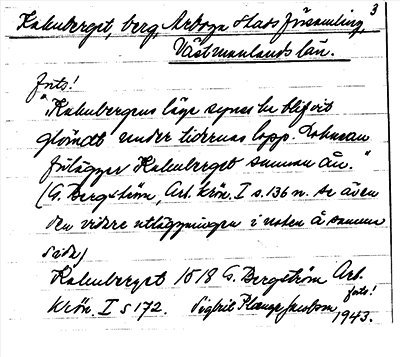 3
Kakuberget, berg, Arboga stads församling,
Västmanlands län.
forts!
"Kakubergens läge synes ha blifvit
glömdt under tidernas lopp. Dokumen
förlägger Kakuberget samman ån."
(G. Bergström, Arb. krön. I s. 136 n. se även
den vidare utläggningen i noten å samma
sida)
Kakuberget 1518 G. Bergström Arb.
krön. I s 172. Sigbrit Plange Jacobson forts!
1943.